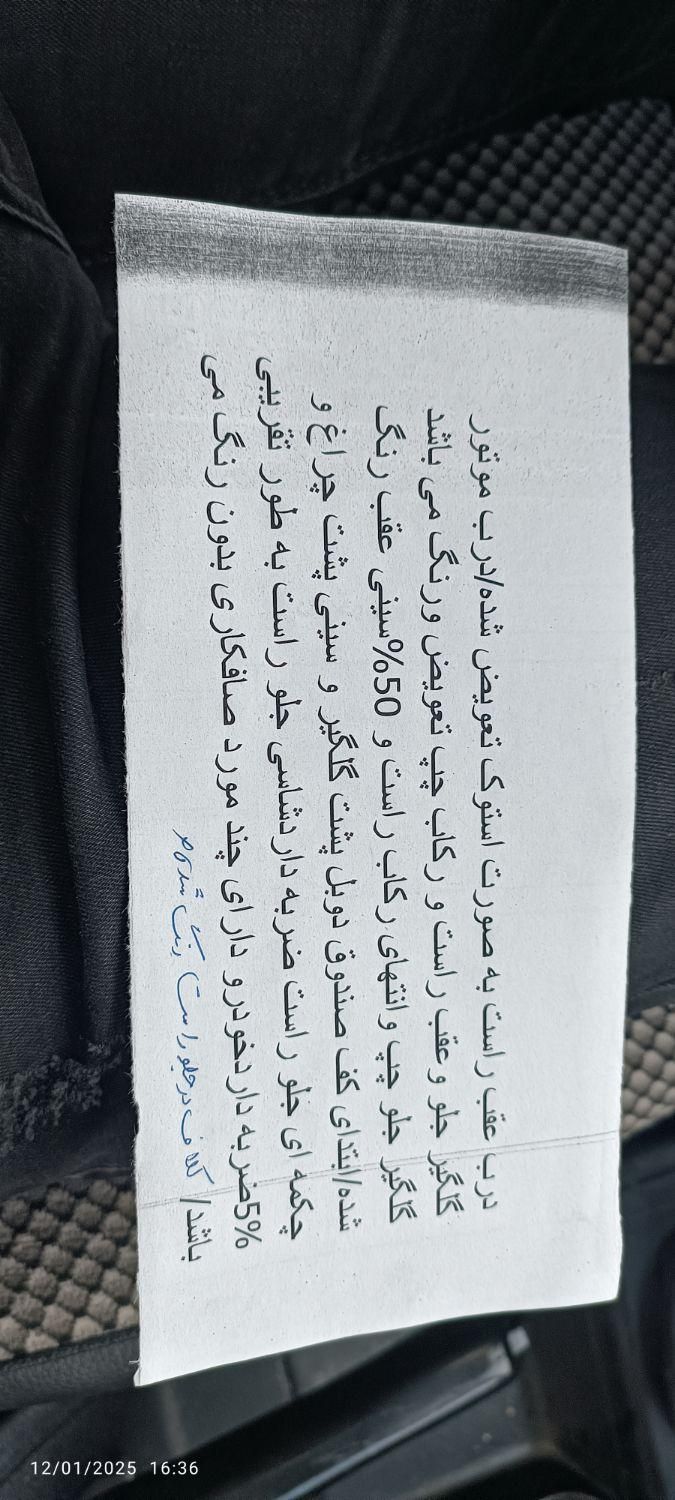 درب عقب راست به صورت استوک تعویض شده/درب موتور
گلگیر جلو و عقب راست و رکاب چپ تعویض ورنگ می باشد
گلگیر جلو چپ و انتهای رکاب راست و 50%سینی عقب رنگ
شده/ابتدای کف صندوق دوبل پشت گلگیر و سینی پشت چراغ و
چکمه ای جلو راست ضربه داردشاسی جلو راست به طور تقریبی
5%ضربه داردخودرو دارای چند مورد صافکاری بدون رنگ می
باشد/ کلاف درجلو راست رنگ شده
12/01/2025 16:36